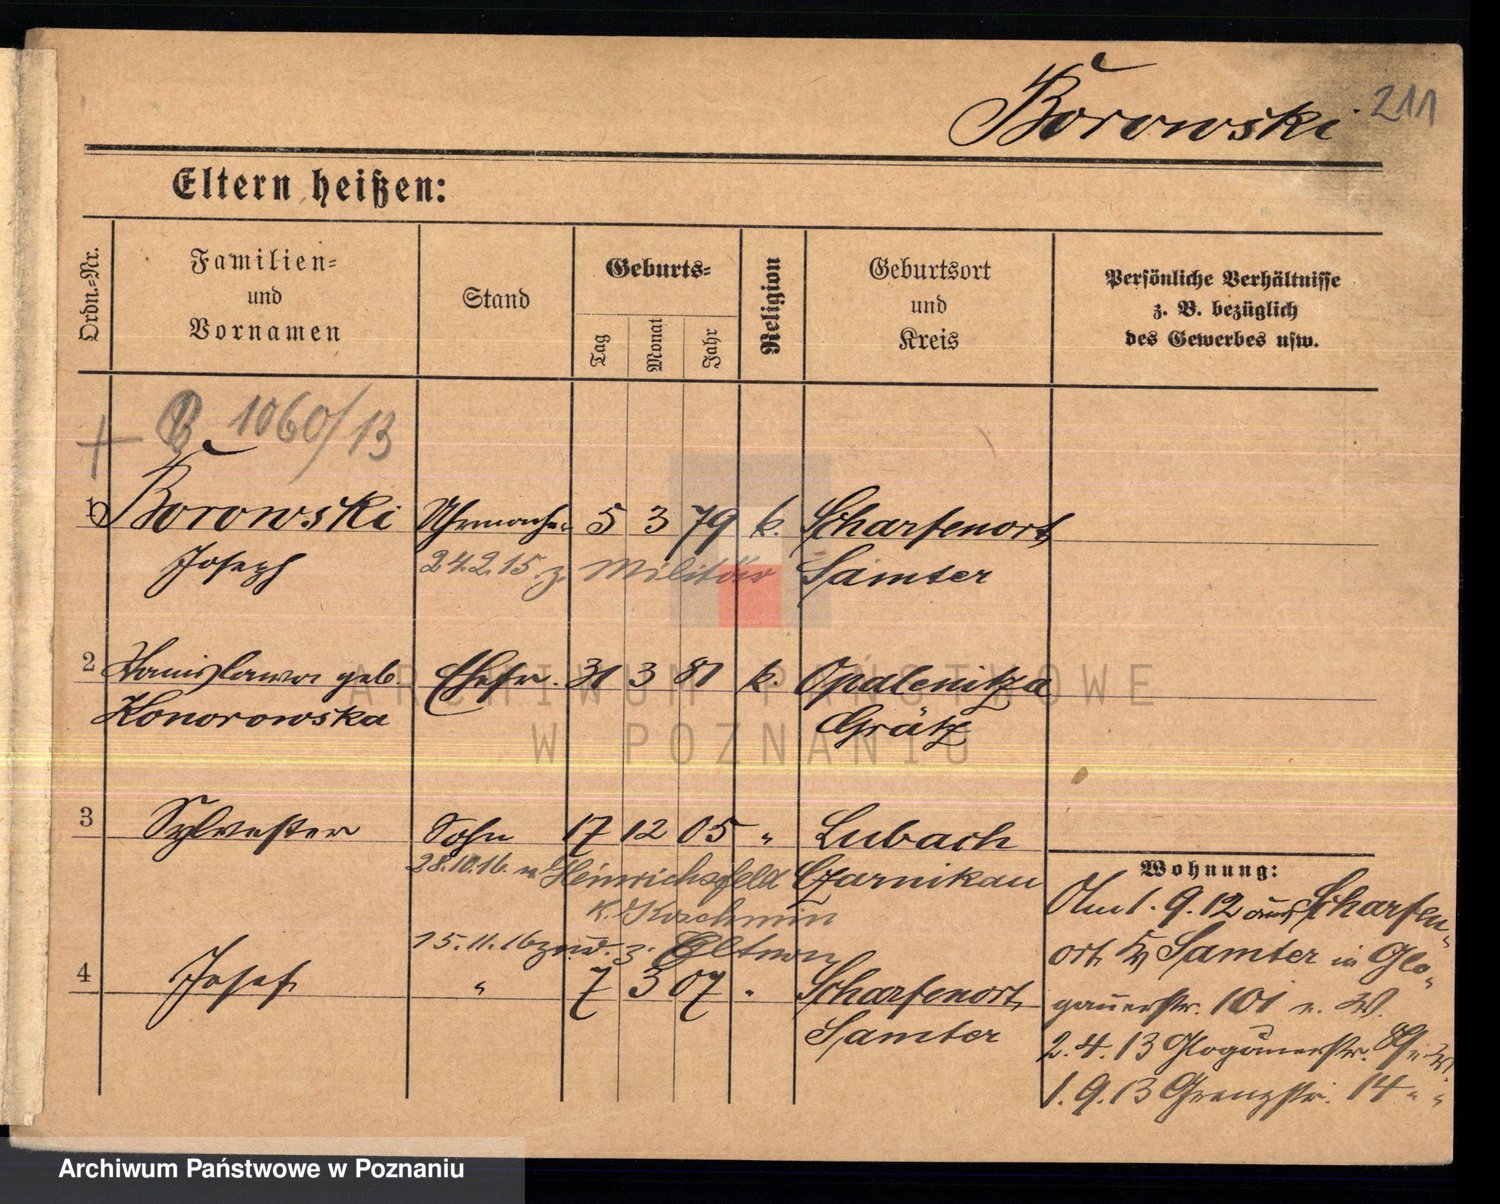 Borowski 211
Eltern heißen:
Ordn.-Nr.
Familien-
und
Vornamen
Stand
Geburts-
Tag
Monat
Jahr
Religion
Geburtsort
und
Kreis
Persönliche Verhältnisse
z. B. bezüglich
des Gewerbes usw.
B 1060/13
1 Borowski Uhrmacher 5 3 79 k. Scharfenort
Joseph 24.2.15. z. Militär Samter
2 Stanislawa geb. Ehefr. 31 3 81 k. Opalenitza
Konorowska Grätz
3 Sylvester Sohn 17 12 05 " Lubach
28.10.16. n Heinrichsfeld Czarnikau
K. Koschmin
15.11.16 zurü. z. Eltern
4 Josef " 7 3 07 " Scharfenort
Samter
Wohnung:
Am 1.9.12 aus Scharfen-
ort Samter in Glo-
gauerstr. 101 e. W.
2.4.13 Glogauerstr. 89 e. W.
1.9.13 Grenzstr. 14 " "
ARCHIWUM PAŃSTWOWE
W POZNANIU
Archiwum Państwowe w Poznaniu